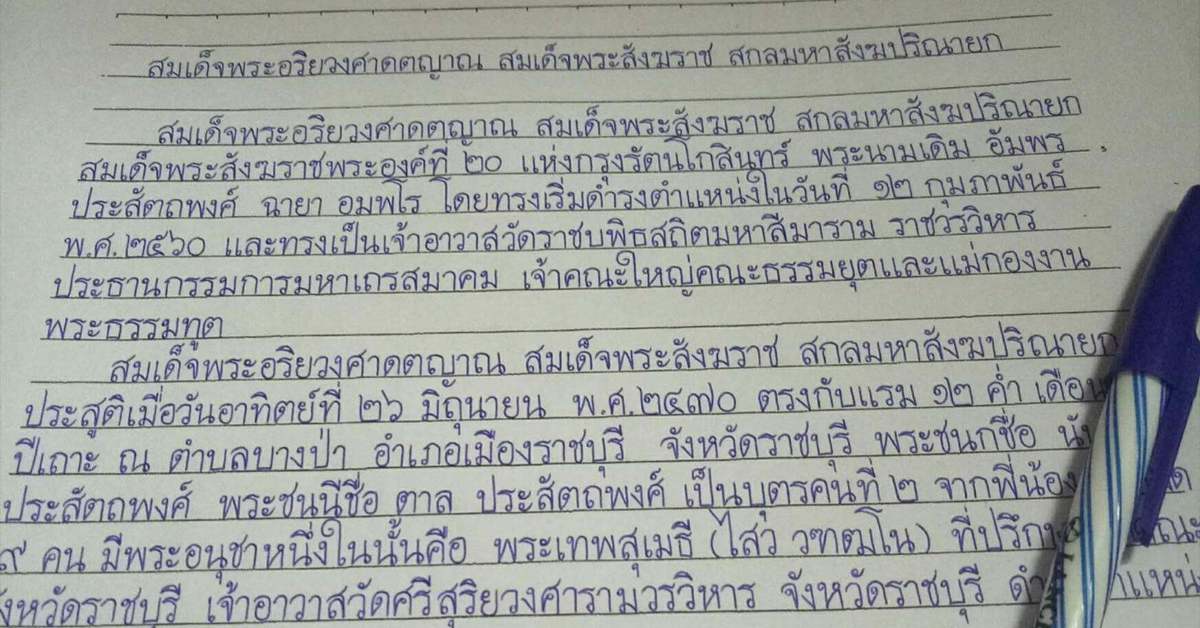 สมเด็จพระอริยวงศาคตญาณ สมเด็จพระสังฆราช สกลมหาสังฆปริณายก
สมเด็จพระอริยวงศาคตญาณ สมเด็จพระสังฆราช สกลมหาสังฆปริณายก
สมเด็จพระสังฆราชพระองค์ที่ ๒๐ แห่งกรุงรัตนโกสินทร์ พระนามเดิม อัมพร
ประสัตถพงศ์ ฉายา อมพโร โดยทรงเริ่มดำรงตำแหน่งในวันที่ ๑๒ กุมภาพันธ์
พ.ศ.๒๕๖๐ และทรงเป็นเจ้าอาวาสวัดราชบพิธสถิตมหาสีมาราม ราชวรวิหาร
ประธานกรรมการมหาเถรสมาคม เจ้าคณะใหญ่คณะธรรมยุตและแม่กองงาน
พระธรรมทูต
สมเด็จพระอริยวงศาคตญาณ สมเด็จพระสังฆราช สกลมหาสังฆปริณายก
ประสูติเมื่อวันอาทิตย์ที่ ๒๖ มิถุนายน พ.ศ.๒๔๗๐ ตรงกับแรม ๑๒ ค่ำ เดือน
ปีเถาะ ณ ตำบลบางป่า อำเภอเมืองราชบุรี จังหวัดราชบุรี พระชนกชื่อ
ประสัตถพงศ์ พระชนนีชื่อ ตาล ประสัตถพงศ์ เป็นบุตรคนที่ ๒ จากพี่น้อง
๙ คน มีพระอนุชาหนึ่งในนั้นคือ พระเทพสุเมธี (ไสว วฑฒโน)
จังหวัดราชบุรี เจ้าอาวาสวัดศรีสุริยวงศารามวรวิหาร จังหวัดราชบุรี